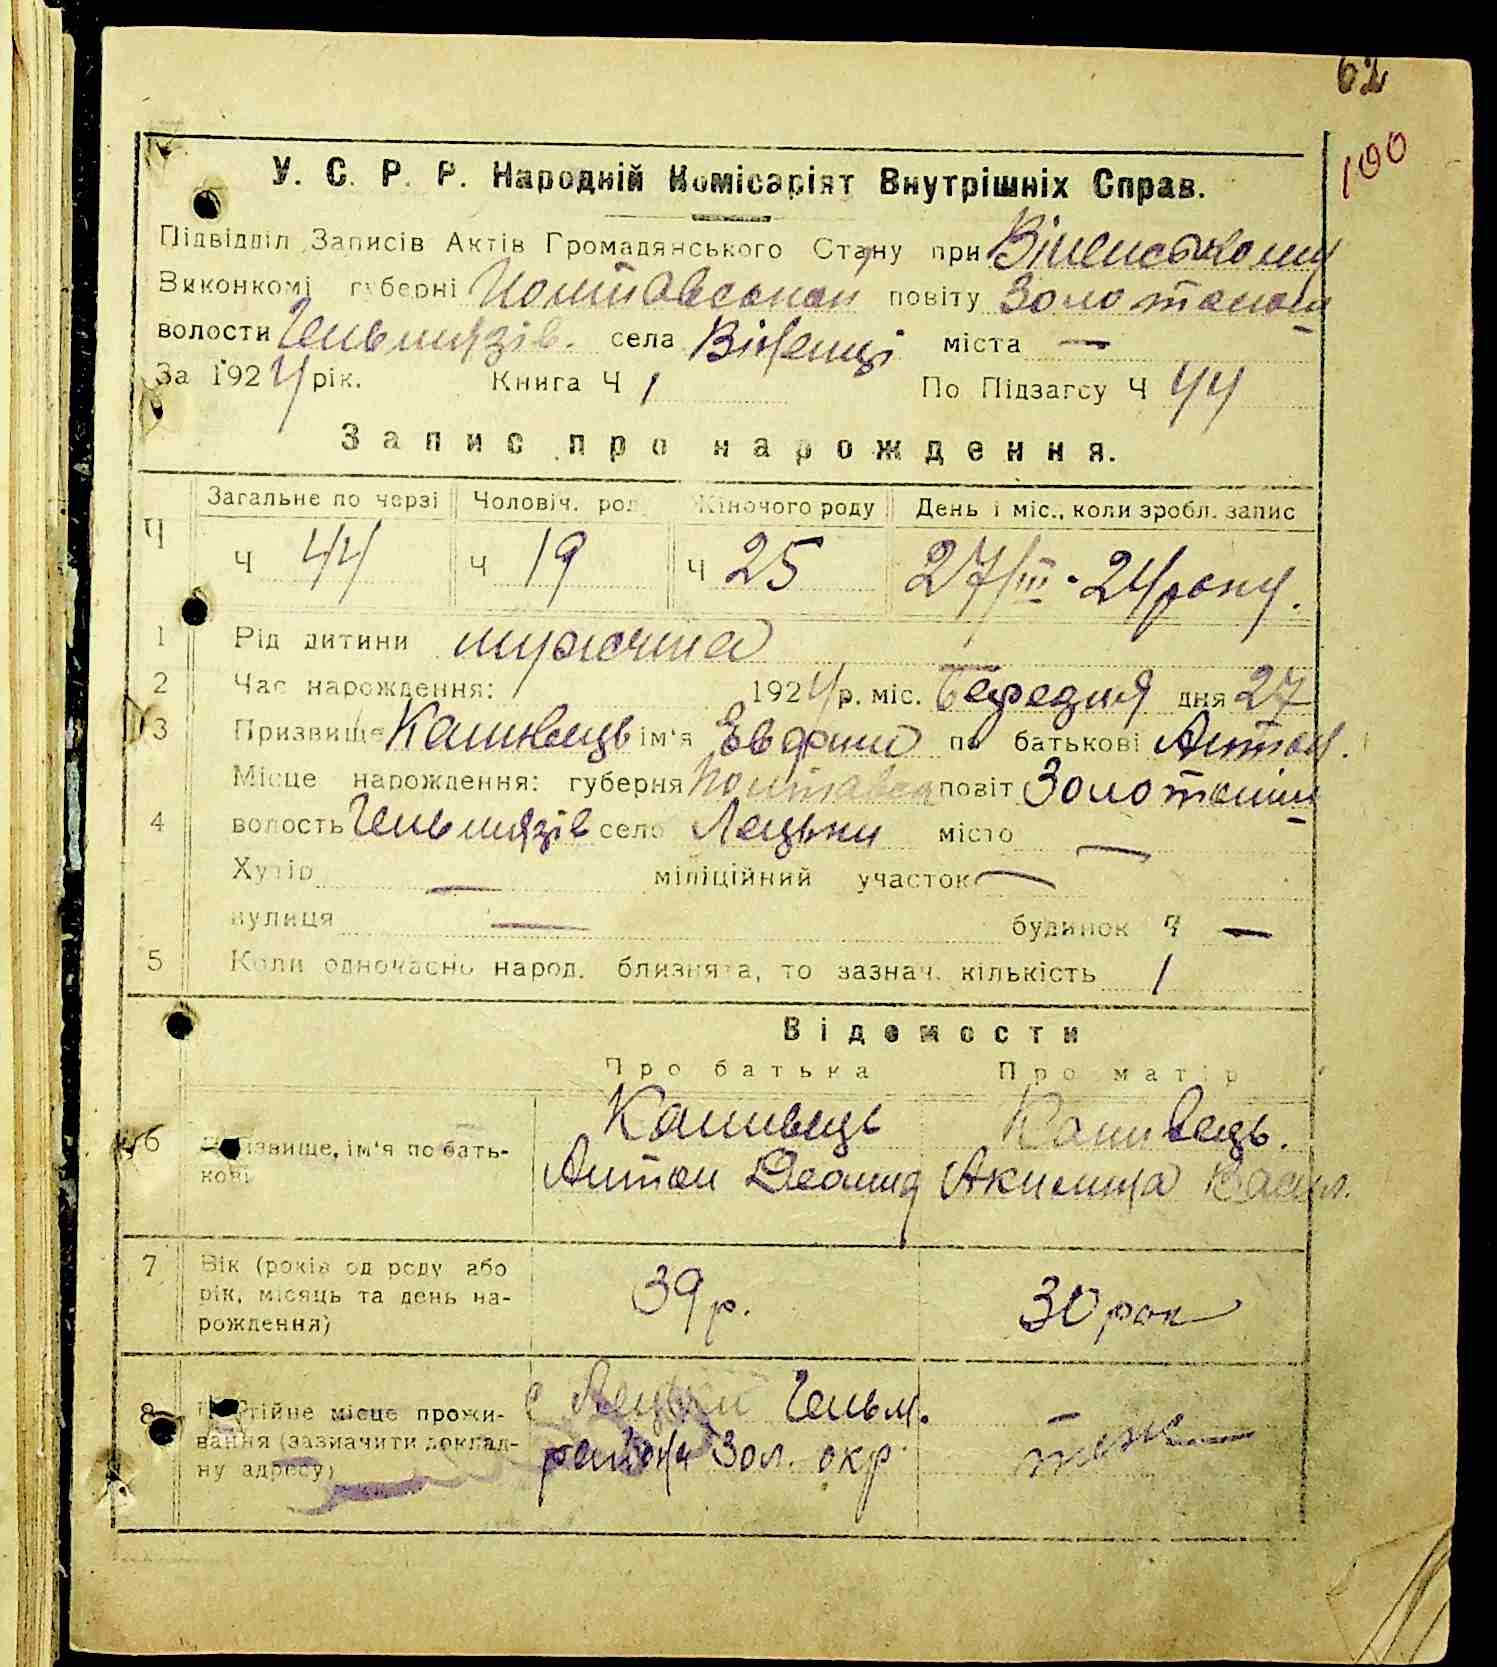 62
100
У. С. Р. Р. Народній Комісаріят Внутрішніх Справ.
Підвідділ Записів Актів Громадянського Стану при Віненському
Виконкомі губерні Полтавської повіту Золотонош
волости Гельмязів. села Віненці міста —
За 1924 рік. Книга Ч 1 По Підзагсу Ч 44
Запис про народження.
Ч Загальне по черзі Чоловіч. род Жіночого роду День і міс., коли зробл. запис
Ч 44 Ч 19 Ч 25 27/III - 24 року.
1 Рід дитини мужчина
2 Час народження: 1924 р. міс. Березня дня 27
3 Призвище Кашивець ім'я по батькові Антон.
Місце народження: губерня Полтавська повіт Золотонош
4 волость Гельмязів село Лецьки місто —
Хутір — міліційний участок —
вулиця — будинок Ч —
5 Коли одночасно народ. близнята, то зазнач. кількість 1
Відомости
Про батька Про матір
6 Призвище, ім'я по бать- Кашивець Кашивець.
кові Антон Акилина Васил.
7 Вік (років од роду або 39 р. 30 рок
рік, місяць та день на-
рождення)
8 Постійне місце прожи- с Лецьки Гельм.
вання (зазначити доклад- района Зол. окр. теж
ну адресу)